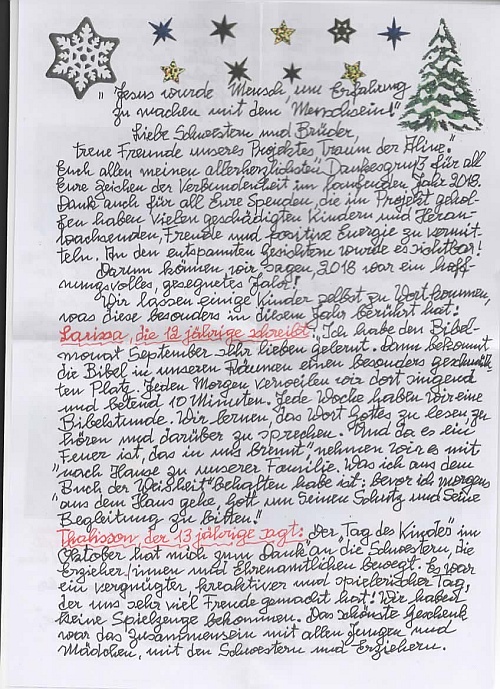 "Jesus wurde Mensch, um Erfahrung
zu machen mit dem Menschsein!"
Liebe Schwestern und Brüder,
treue Freunde unseres Projektes "Traum der Aline".
Euch allen meinen allerherzlichsten Dankesgruß für all
Eure Zeichen der Verbundenheit im ganzen Jahr 2018.
Dank auch für all Eure Spenden, die im Projekt gehol-
fen haben vielen geschädigten Kindern und Heran-
wachsenden, Freude und positive Energie zu vermit-
teln. An den entspannten Gesichtern wurde es sichtbar!
Darum können wir sagen, 2018 war ein hoff
nungsvolles, gesegnetes Jahr!
Wir lassen einige Kinder selbst zu Wort kommen,
was diese besonders in diesem Jahr berührt hat:
Larissa, die 12 jährige schreibt: "Ich habe den Bibel-
monat September sehr lieben gelernt. Dann bekommt
die Bibel in unseren Räumen einen besonders geschmück
ten Platz. Jeden Morgen verweilen wir dort singend
und betend 10 Minuten. Jede Woche haben wir eine
Bibelstunde. Wir lernen, das Wort Gottes zu lesen, zu
hören und darüber zu sprechen. Und da es ein
Feuer ist, das in uns brennt" nehmen wir es mit
nach Hause zu unserer Familie. Was ich aus dem
"Buch der Weisheit" behalten habe ist: bevor ich morgens
aus dem Haus gehe, Gott um Seinen Schutz und Seine
Begleitung zu bitten!"
Thalisson der 13 jährige sagt: Der "Tag des Kindes" im
Oktober hat mich zum Dank an die Schwestern, die
Erzieher/innen und Ehrenamtlichen bewegt. Es war
ein vergnügter, kreativer und spielerischer Tag,
der uns sehr viel Freude gemacht hat! Wir haben
keine Spielzeuge bekommen. Das schönste Geschenk
war das Zusammensein mit allen Jungen und
Mädchen, mit den Schwestern und Erziehern.